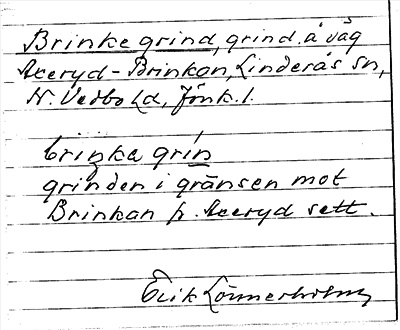 Brinke grind, grind, å väg
Axeryd - Brinkan, Linderås sn,
N. Vedbo hd, Jönk. l.
brinka grin
grinden i gränsen mot
Brinkan fr. Axeryd sett.
Erik Lönnerholm